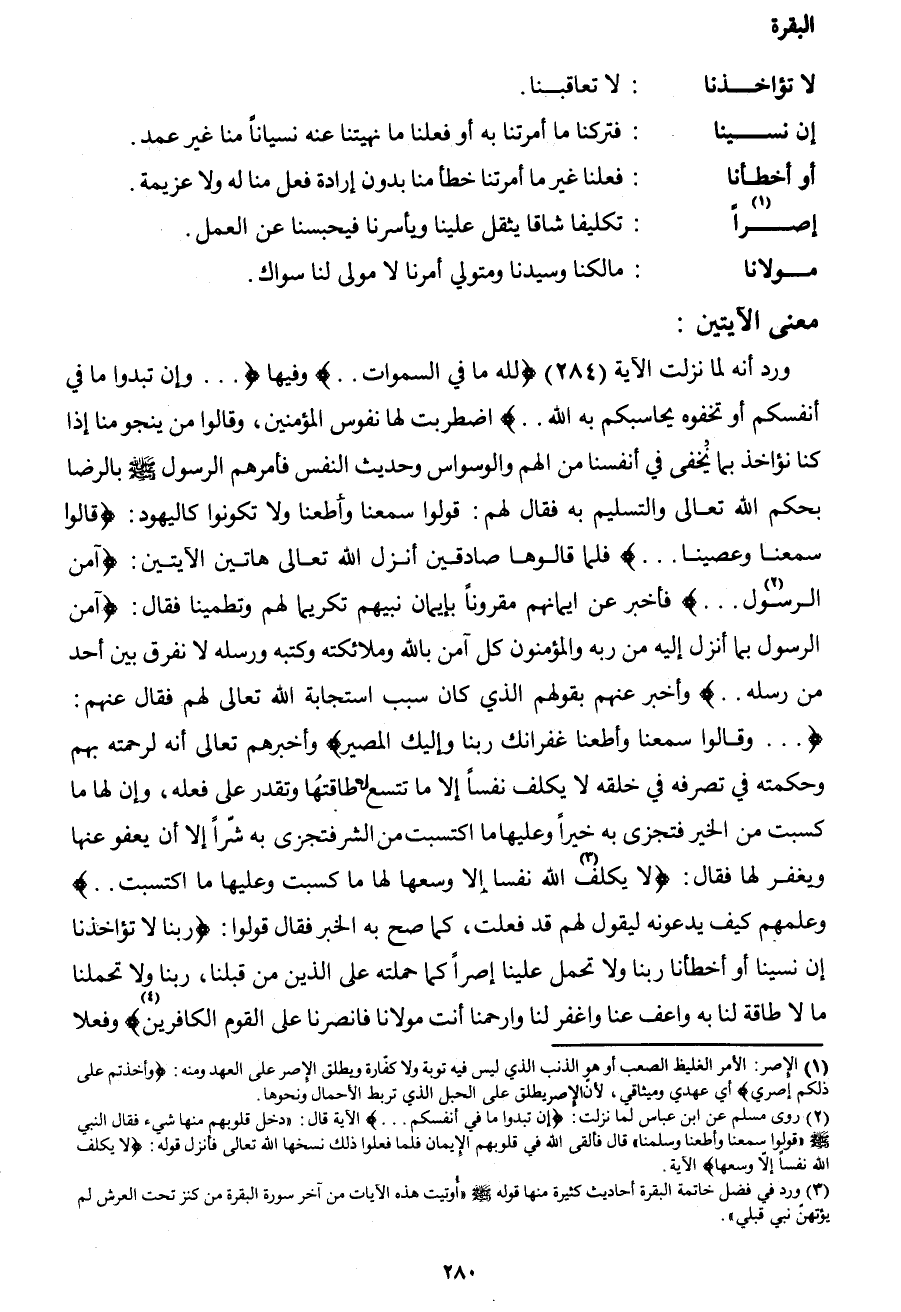 البقرة
لا تؤاخـــذنا : لا تعاقبـنا.
إن نســـينا : فتركنا ما أمرتنا به أو فعلنا ما نهيتنا عنه نسياناً منا غير عمد.
أو أخطـأنا : فعلنا غير ما أمرتنا خطأ منا بدون إرادة فعل منا له ولا عزيمة.
إصـــــراً (١) : تكليفا شاقا يثقل علينا ويأسرنا فيحبسنا عن العمل.
مـــولانا : مالكنا وسيدنا ومتولي أمرنا لا مولى لنا سواك.
معنى الآيتين :
ورد أنه لما نزلت الآية (٢٨٤) ﴿لله ما في السموات..﴾ وفيها ﴿... وإن تبدوا ما في
أنفسكم أو تخفوه يحاسبكم به الله..﴾ اضطربت لها نفوس المؤمنين، وقالوا من ينجو منا إذا
كنا نؤاخذ بما نُخفى في أنفسنا من الهم والوسواس وحديث النفس فأمرهم الرسول ﷺ بالرضا
بحكم الله تعـالى والتسليم به فقال لهم: قولوا سمعنا وأطعنا ولا تكونوا كاليهود: ﴿قالوا
سمعنـا وعصينـا...﴾ فلما قالـوهـا صادقـين أنـزل الله تعـالى هاتـين الآيتـين: ﴿آمن
الـرسـول (٢)...﴾ فأخبر عن ايمانهم مقروناً بإيمان نبيهم تكريما لهم وتطمينا فقال: ﴿آمن
الرسول بما أنزل إليه من ربه والمؤمنون كل آمن بالله وملائكته وكتبه ورسله لا نفرق بين أحد
من رسله..﴾ وأخبر عنهم بقولهم الذي كان سبب استجابة الله تعالى لهم فقال عنهم:
﴿... وقـالوا سمعنا وأطعنا غفرانك ربنا وإليك المصير﴾ وأخبرهم تعالى أنه لرحمته بهم
وحكمته في تصرفه في خلقه لا يكلف نفساً إلا ما تتسع له طاقتهُا وتقدر على فعله، وإن لها ما
كسبت من الخير فتجزى به خيراً وعليها ما اكتسبت من الشر فتجزى به شرّاً إلا أن يعفو عنها
ويغفـر لها فقال: ﴿لا يكلف (٣) الله نفسا إلا وسعها لها ما كسبت وعليها ما اكتسبت..﴾
وعلمهم كيف يدعونه ليقول لهم قد فعلت، كما صح به الخبر فقال قولوا: ﴿ربنا لا تؤاخذنا
إن نسينا أو أخطأنا ربنا ولا تحمل علينا إصراً كما حملته على الذين من قبلنا، ربنا ولا تحملنا
ما لا طاقة لنا به واعف عنا واغفر لنا وارحمنا أنت مولانا فانصرنا على القوم الكافرين (٤)﴾ وفعلا
(١) الإصر: الأمر الغليظ الصعب أو هو الذنب الذي ليس فيه توبة ولا كفّارة ويطلق الإصر على العهد ومنه: ﴿وأخذتم على
ذلكم إصري﴾ أي عهدي وميثاقي، لأنّ الإصر يطلق على الحبل الذي تربط الأحمال ونحوها.
(٢) روى مسلم عن ابن عباس لما نزلت: ﴿إن تبدوا ما في أنفسكم...﴾ الآية قال: «دخل قلوبهم منها شيء فقال النبي
ﷺ «قولوا سمعنا وأطعنا وسلمنا» قال فألقى الله في قلوبهم الإيمان فلما فعلوا ذلك نسخها الله تعالى فأنزل قوله: ﴿لا يكلف
الله نفساً إلّا وسعها﴾ الآية.
(٣) ورد في فضل خاتمة البقرة أحاديث كثيرة منها قوله ﷺ «أُوتيت هذه الآيات من آخر سورة البقرة من كنز تحت العرش لم
يؤتهنّ نبي قبلي».
٢٨٠